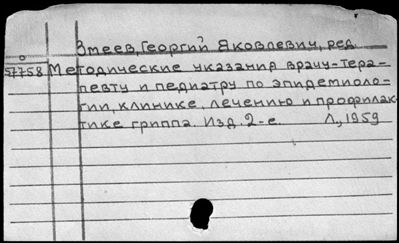 Змеев, Георгий Яковлевич, ред.
0
57758 Методические указания врачу-тера-
певту и педиатру по эпидемиоло-
гии, клинике, лечению и профилак-
тике гриппа. Изд. 2-е. Л., 1959